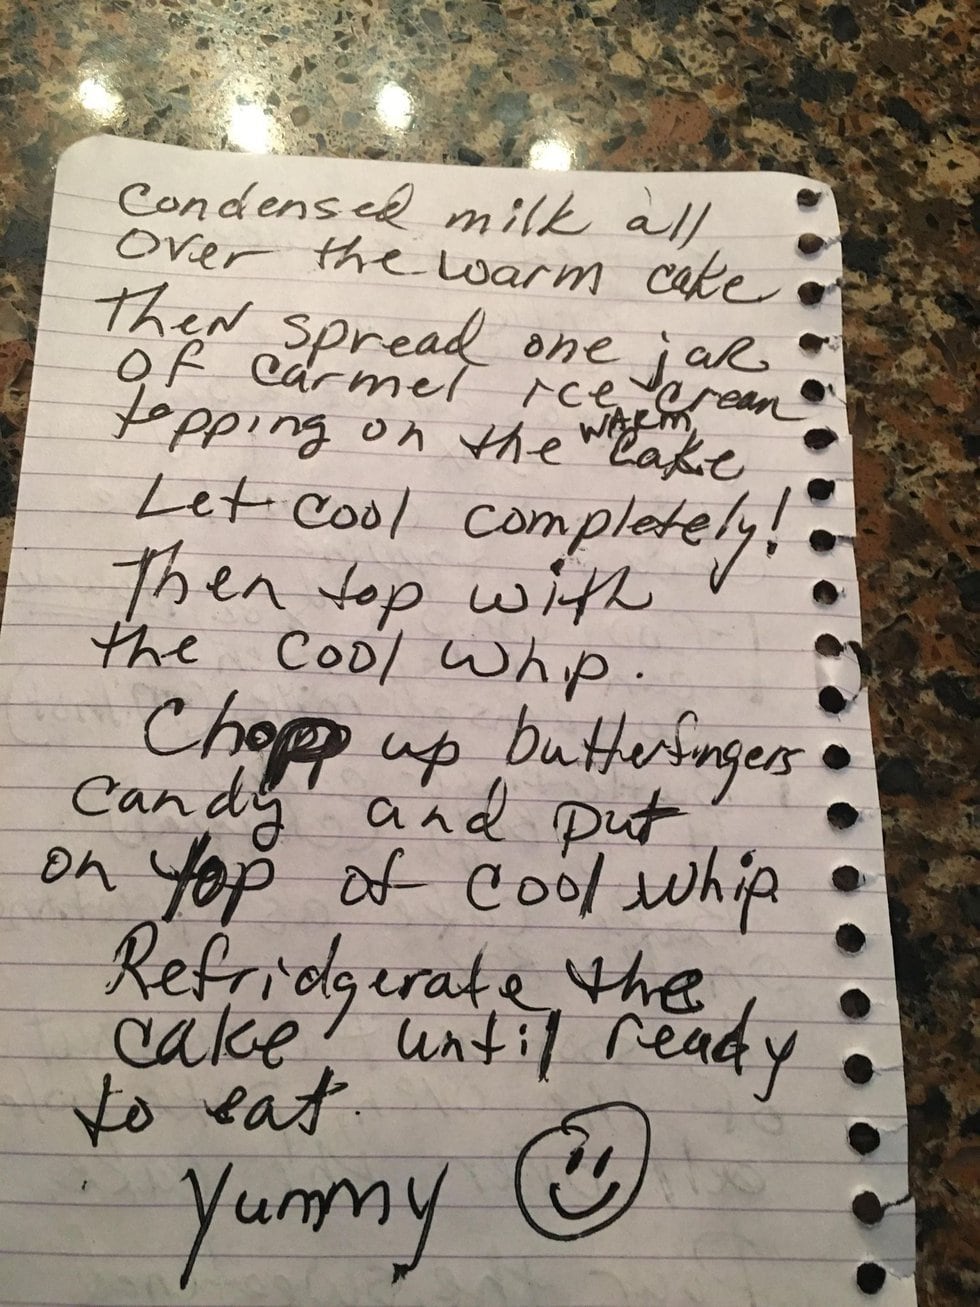 Condensed milk all
over the warm cake
Then spread one jar
of carmel ice cream
topping on the WARM cake
Let cool completely!
Then top with
the cool whip.
Chopp up butterfingers
candy and put
on top of cool whip
Refridgerate the
cake until ready
to eat.
Yummy